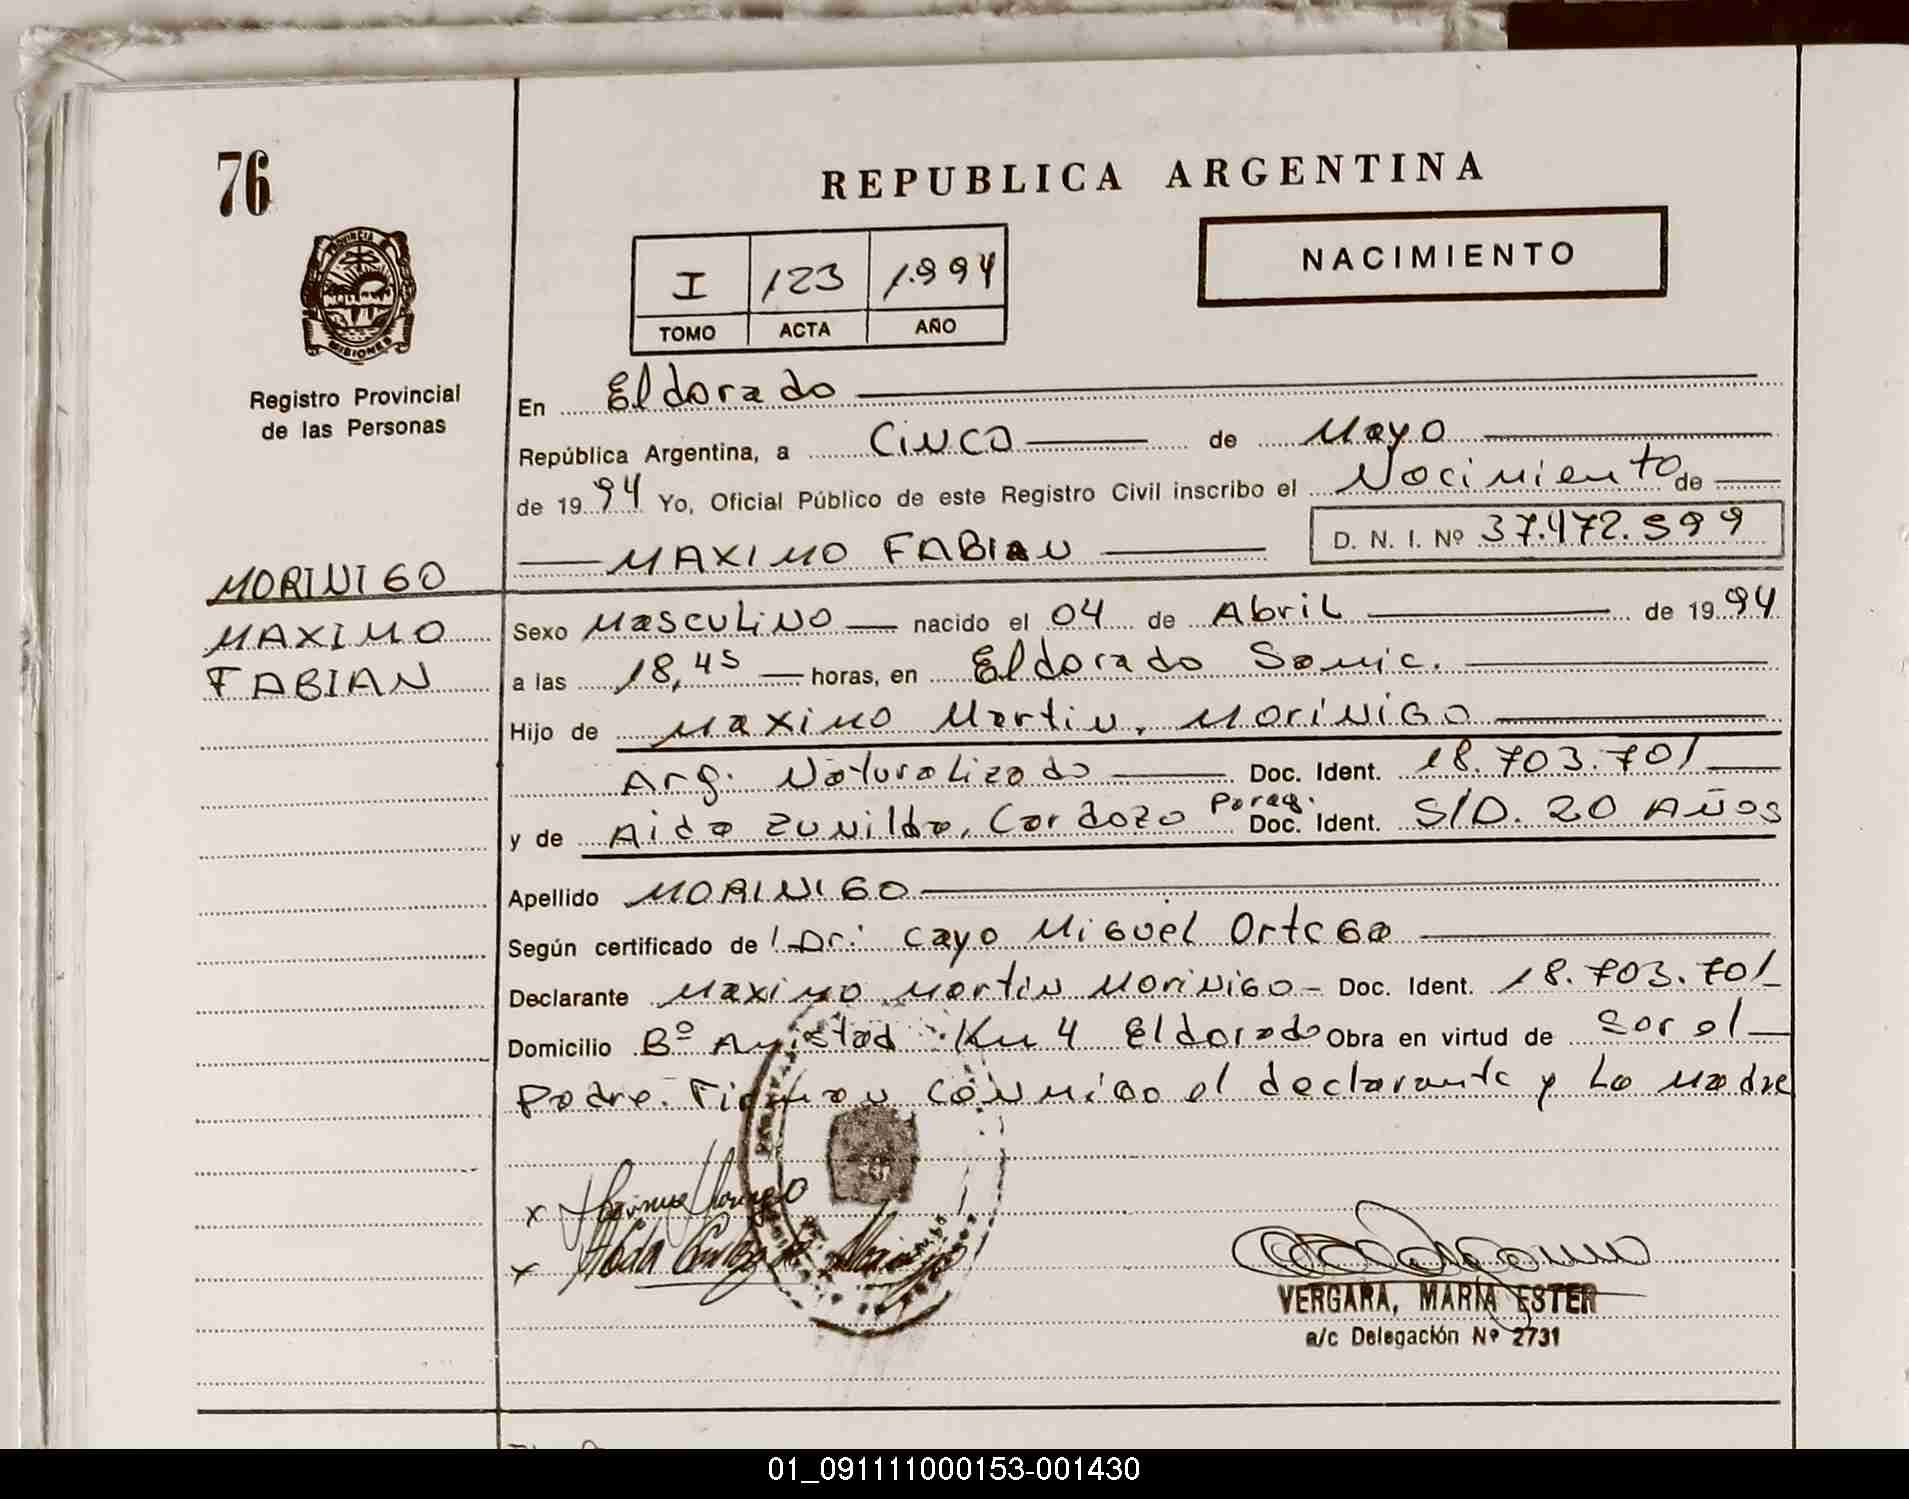 76
REPUBLICA ARGENTINA
NACIMIENTO
PROVINCIA
MISIONES
I 123 1.994
TOMO ACTA AÑO
Registro Provincial
de las Personas
En Eldorado
República Argentina, a CINCO de Mayo
de 1994 Yo, Oficial Público de este Registro Civil inscribo el Nacimiento de
MAXIMO FABIAN D. N. I. Nº 37.472.599
MORINIGO
MAXIMO
FABIAN
Sexo Masculino nacido el 04 de Abril de 1994
a las 18,45 horas, en Eldorado Samic.
Hijo de Maximo Martin, MORINIGO
Arg. Naturalizado Doc. Ident. 18.703.701
y de Aida Zunilda, Cardozo Parag. Doc. Ident. S/D. 20 AÑOS
Apellido MORINIGO
Según certificado de Dr: Cayo Miguel Ortega
Declarante Maximo Martin Morinigo Doc. Ident. 18.703.701
Domicilio Bº Amistad Km 4 Eldorado Obra en virtud de Ser el
Padre. Firman conmigo el declarante y La madre
x
x
VERGARA, MARIA ESTER
a/c Delegación Nº 2731
01_091111000153-001430